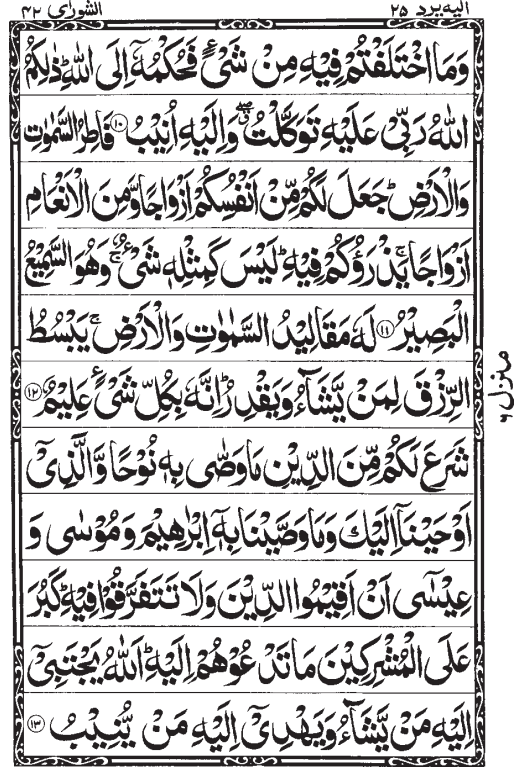 الشورٰى ٤٢
اليه يرد ٢٥
وَمَا اخْتَلَفْتُمْ فِيْهِ مِنْ شَيْءٍ فَحُكْمُهٗۤ اِلَى اللّٰهِ ؕ ذٰلِكُمُ
اللّٰهُ رَبِّيْ عَلَيْهِ تَوَكَّلْتُ ۖۗ وَاِلَيْهِ اُنِيْبُ ۝١٠ فَاطِرُ السَّمٰوٰتِ
وَالْاَرْضِ ؕ جَعَلَ لَكُمْ مِّنْ اَنْفُسِكُمْ اَزْوَاجًا وَّمِنَ الْاَنْعَامِ
اَزْوَاجًا ۚ يَذْرَؤُكُمْ فِيْهِ ؕ لَيْسَ كَمِثْلِهٖ شَيْءٌ ۚ وَهُوَ السَّمِيْعُ
الْبَصِيْرُ ۝١١ لَهٗ مَقَالِيْدُ السَّمٰوٰتِ وَالْاَرْضِ ۚ يَبْسُطُ
الرِّزْقَ لِمَنْ يَّشَآءُ وَيَقْدِرُ ؕ اِنَّهٗ بِكُلِّ شَيْءٍ عَلِيْمٌ ۝١٢
شَرَعَ لَكُمْ مِّنَ الدِّيْنِ مَا وَصّٰى بِهٖ نُوْحًا وَّالَّذِيْۤ
اَوْحَيْنَاۤ اِلَيْكَ وَمَا وَصَّيْنَا بِهٖۤ اِبْرٰهِيْمَ وَمُوْسٰى وَ
عِيْسٰۤى اَنْ اَقِيْمُوا الدِّيْنَ وَلَا تَتَفَرَّقُوْا فِيْهِ ؕ كَبُرَ
عَلَى الْمُشْرِكِيْنَ مَا تَدْعُوْهُمْ اِلَيْهِ ؕ اَللّٰهُ يَجْتَبِيْۤ
اِلَيْهِ مَنْ يَّشَآءُ وَيَهْدِيْۤ اِلَيْهِ مَنْ يُّنِيْبُ ۝١٣
منزل ٦